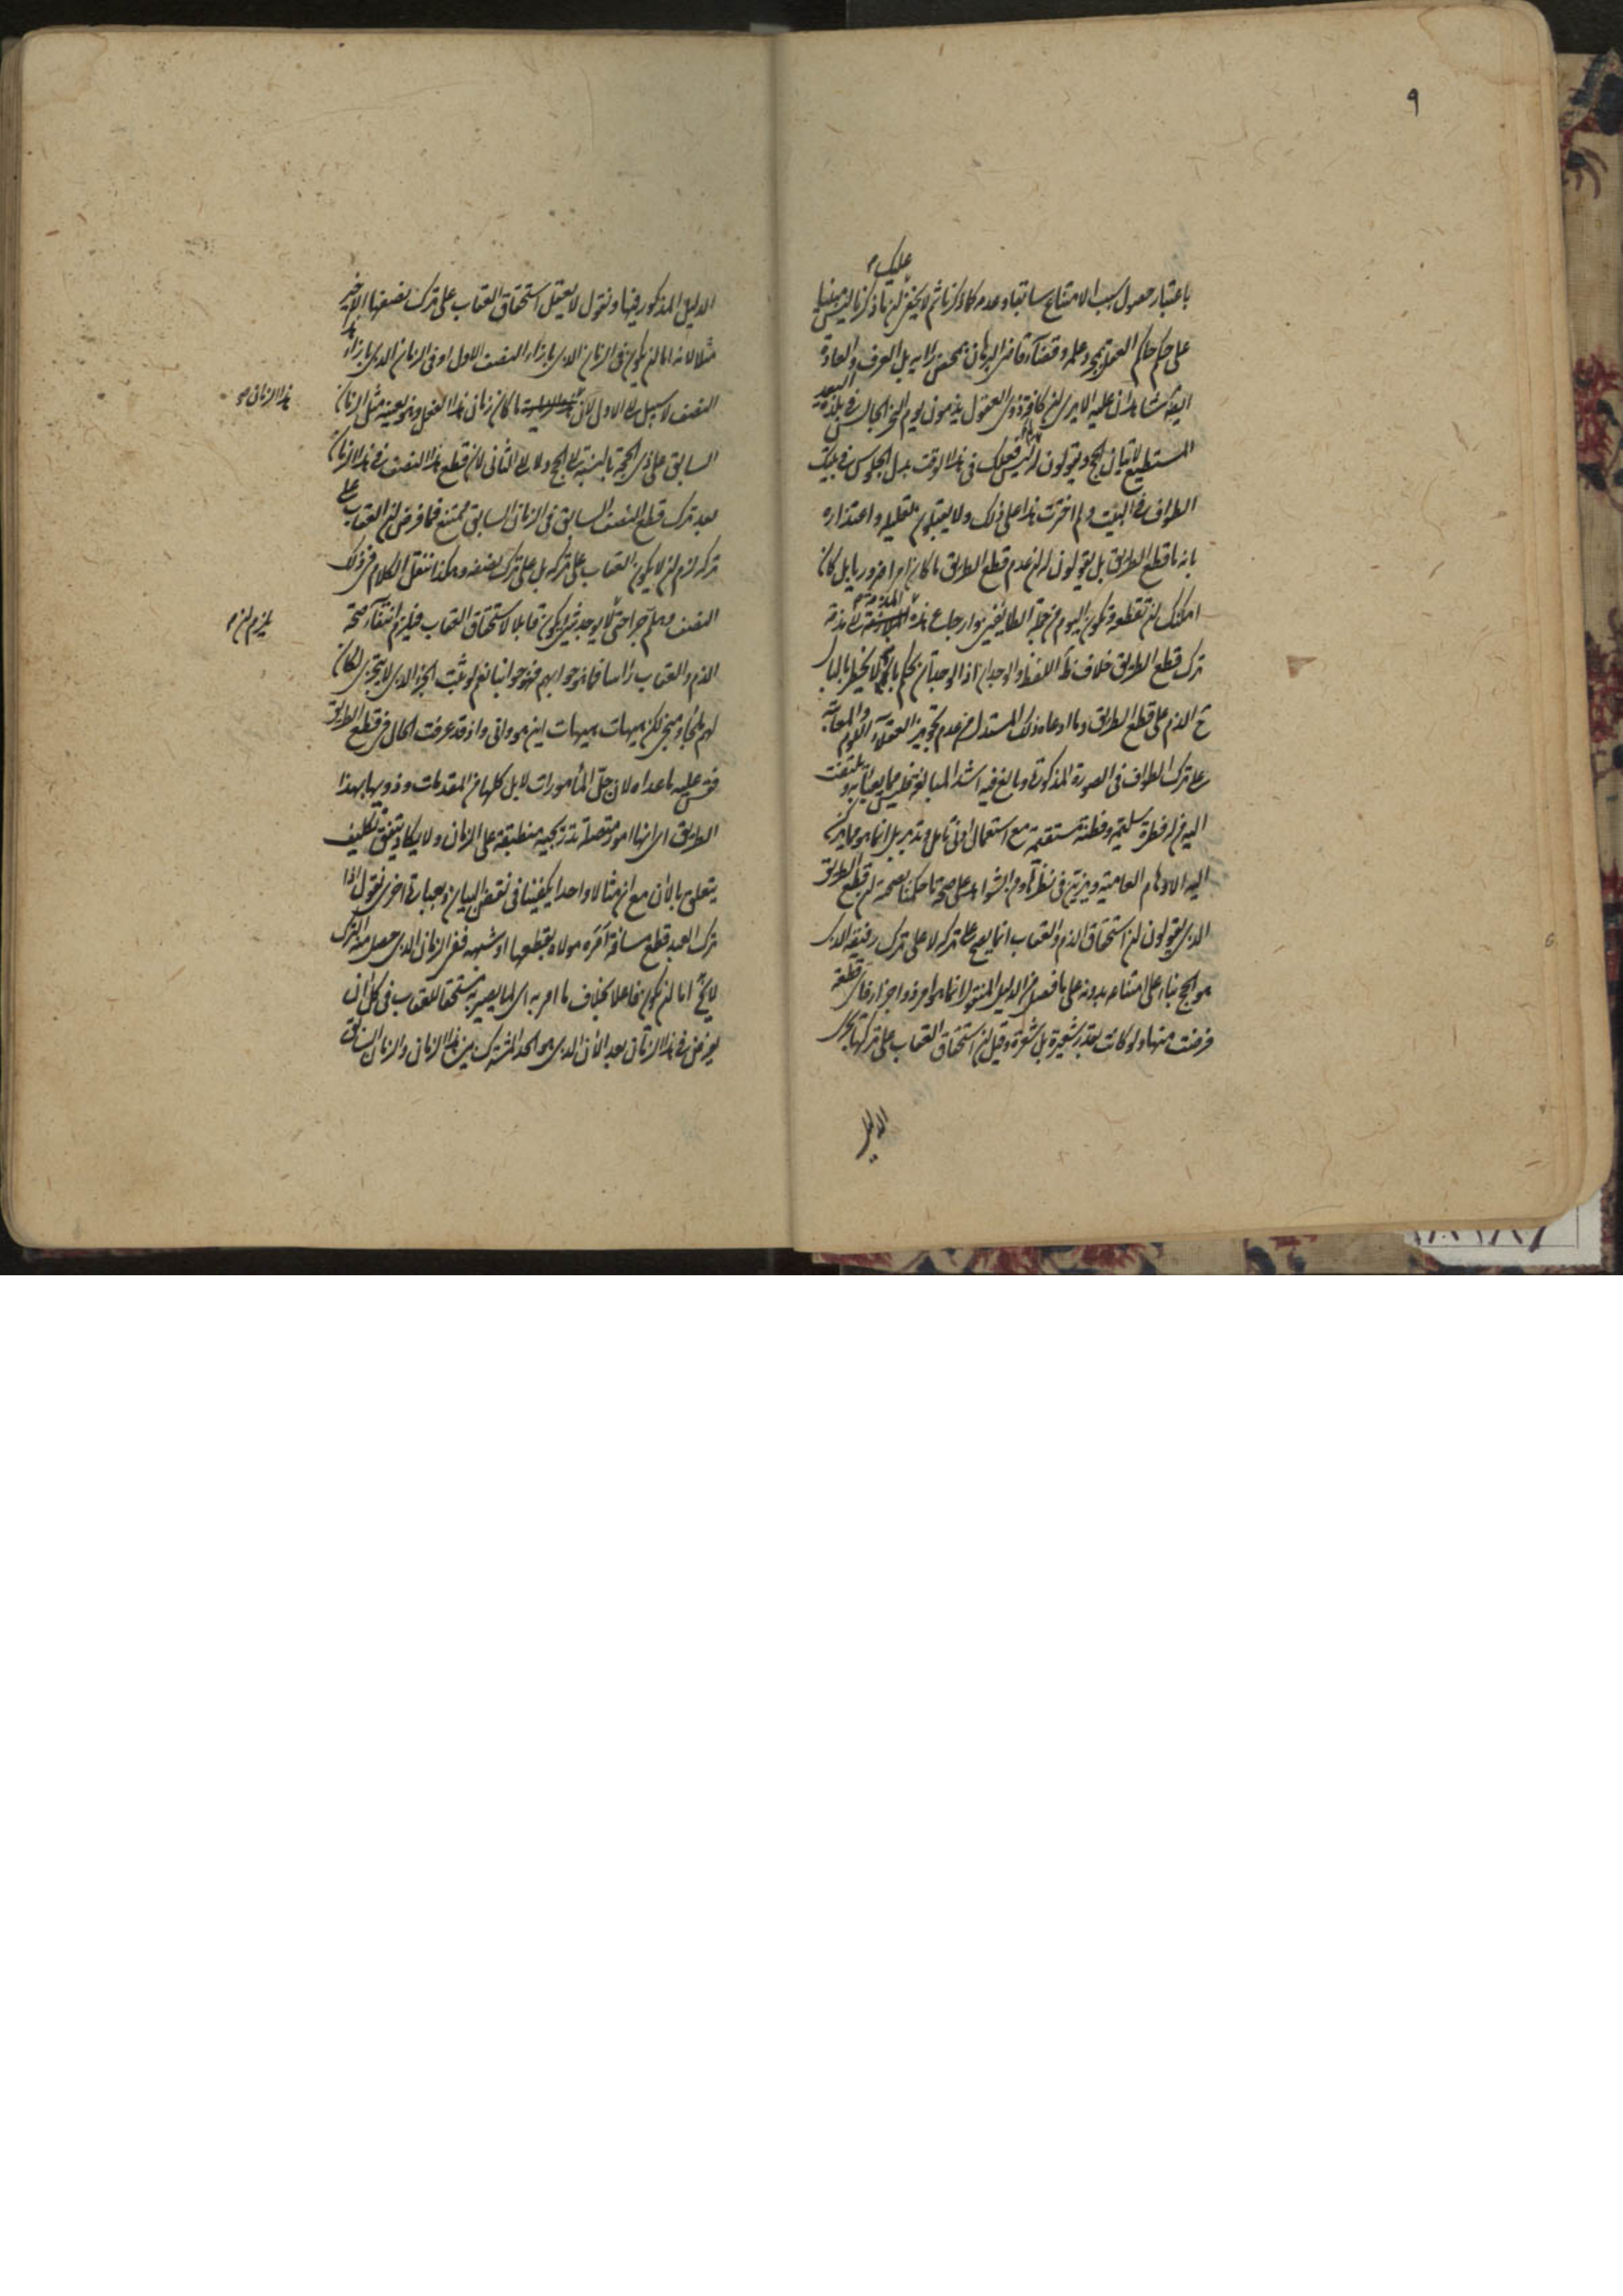 ٩
عليك
باعتبار حصول سبب الامتناع سابقا وعدمه كما ذكرنا ثم لا يخفى ان ما ذكرنا ليس مبنيا
على حكم حاكم العقل بمجرده وقضاء قاضي البرهان بمحض رأيه بل العرف والعادة
ايضا شاهدان عليه الا يرى ان كافة ذوى العقول يذمون يوم النحر الجالس في بلدة
المستطيع لاتيان الحج ويقولون له ليس فعلك في هذا الوقت بدل الجلوس في بيتك
الطواف في البيت ولم اخترت هذا على ذلك ولا يقبلون تعليله واعتذاره
بانه ما قطع الطريق بل يقولون له ان عدم قطع الطريق ما كان امرا ضروريا بل كان
امكنك ان تقطعه وتكون اليوم من جملة الطائفين وارجاع هذه المذمة الى مذمة
ترك قطع الطريق خلاف ظاهر اللفظ والوجدان اذ الوجدان يحكم بانه لا يخطر بالبال
ح الذم على قطع الطريق وما ادعاه ذلك المستدل من عدم تجويز العقلاء اللوم والمعاتبة
على ترك الطواف في الصورة المذكورة وبالغ فيه اشد المبالغة فليس مما يعبأ به ويلتفت
اليه من له فطرة سليمة وفطنة مستقيمة مع استعمال ادنى تأمل وتدبر بل انما هو مما يركن
اليه الاوهام العامية ويزين في نظرها ومن الشواهد على صحة ما حكمنا بصحته ان قطع الطريق
الذي يقولون ان استحقاق الذم والعقاب انما يصح على تركه لا على ترك رفيقه الذي
هو الحج بناء على امتناعه بدونه على ما فصل من الدليل المنقول انما هو امر ذو اجزاء فاى قطعة
فرضت منها ولو كانت بقدر شعيرة بل شعرة وقيل ان استحقاق العقاب على تركها نجرى
الدليل
الدليل المذكور فيها ونقول لا يعقل استحقاق العقاب على ترك نصفها الاخير
مثلا لانه اما ان يكون في الزمان الذي بازاء النصف الاول او في الزمان الذي بازاء هذا
النصف لا سبيل الى الاول لان ما كان زمان هذا الفعل وهو بعينه مثل الزمان
هذا الزمان صح
السابق على ذى الحجة بالنسبة الى الحج ولا الى الثاني لان قطع هذا النصف في هذا الزمان
بعد ترك قطع النصف السابق في الزمان السابق ممتنع فما فرض ان العقاب على
تركه لزم ان لا يكون العقاب على تركه بل على ترك نصفه وهكذا ننقل الكلام في ذلك
النصف وهلم جرا حتى لا يوجد شيء يكون قابلا لاستحقاق العقاب فيلزم انتفاء صحة
يلزم ان
الذم والعقاب رأسا فما هو جوابهم فهو جوابنا نعم لو ثبت الجزء الذي لا يتجزى لكان
لهم ملجأ ومنجى لكن هيهات هيهات اين هو وانى واذ قد عرفت الحال في قطع الطريق
فقس عليه ما عداه لان جل المأمورات لا بل كلها من المقدمات وذويها بهذا
الطريق اى انها امور متصلة تدريجية منطبقة على الزمان ولا يكاد يتفق تكليف
يتعلق بالآن مع ان مثالا واحدا يكفينا في نقض البيان وبعبارة اخرى نقول اذا
ترك العبد قطع مسافة آمره مولاه بقطعها او شبهه ففي الزمان الذي حصل منه الترك
لا يخ اما ان يكون فاعلا بخلاف ما امر به اى لما يصير به مستحقا للعقاب في كل آن
يفرض في هذا الزمان بعد الآن الذي هو الحد المشترك بين هذا الزمان والزمان السابق